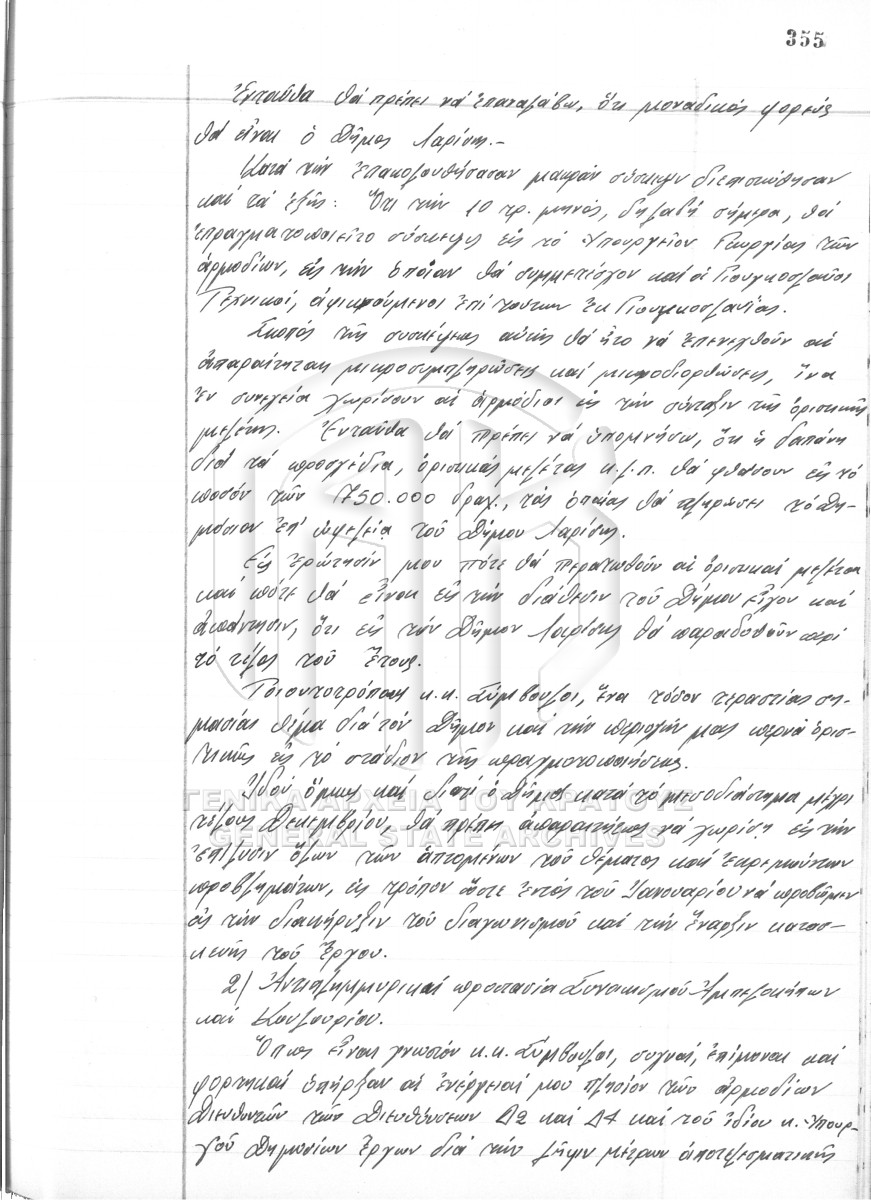 355
Ἐνταῦθα θά πρέπει νά ἐπαναλάβω, ὅτι μοναδικός φορεύς
θά εἶναι ὁ Δῆμος Λαρίσης.-
Κατά τήν ἐπακολουθήσασαν μακράν σύσκεψιν διεπιστώθησαν
καί τά ἑξῆς: Ὅτι τήν 10 τρ. μηνός, δηλαδή σήμερα, θά
ἐπραγματοποιεῖτο σύσκεψις εἰς τό Ὑπουργεῖον Γεωργίας τῶν
ἁρμοδίων, εἰς τήν ὁποίαν θά συμμετεῖχον καί οἱ Γιουγκοσλαῦοι
Τεχνικοί, ἀφικνούμενοι ἐπί τούτων ἐκ Γιουγκοσλαυίας.
Σκοπός τῆς συσκέψεως αὐτῆς θά ἦτο νά ἐπενεχθοῦν αἱ
ἀπαραίτηται μικροσυμπληρώσεις καί μικροδιορθώσεις, ἵνα
ἐν συνεχεία χωρίσουν οἱ ἁρμόδιοι εἰς τήν σύνταξιν τῆς ὁριστικῆς
μελέτης. Ἐνταῦθα θά πρέπει νά ὑπομνήσω, ὅτι ἡ δαπάνη
διά τά προσχέδια, ὁριστικάς μελέτας κ.λ.π. θά φθάσουν εἰς τό
ποσόν τῶν 1750.000 δραχ., τάς ὁποίας θά πληρώσει τό Δη-
μόσιον ἐπ' ὠφελεία τοῦ Δήμου Λαρίσης.
Εἰς ἐρώτησίν μου πότε θά περατωθοῦν αἱ ὁριστικαί μελέται
καί πότε θά εἶναι εἰς τήν διάθεσιν τοῦ Δήμου εἶχον καί
ἀπάντησιν, ὅτι εἰς τόν Δῆμον Λαρίσης θά παραδοθοῦν περί
τό τέλος τοῦ ἔτους.
Τοιουτοτρόπως κ.κ. Σύμβουλοι, ἕνα τόσον τεραστίας ση-
μασίας θέμα διά τόν Δῆμον καί τήν περιοχήν μας περνᾶ ὁρισ-
τικῶς εἰς τό στάδιον τῆς πραγματοποιήσεως.
Ἰδού ὅμως καί διατί ὁ Δῆμος κατά τό μεσοδιάστημα μέχρι
τέλους Δεκεμβρίου, θά πρέπει ἀπαραιτήτως νά χωρίση εἰς τήν
ἐπίλυσιν ὅλων τῶν ἁπτομένων τοῦ θέματος καί ἐκκρεμούντων
προβλημάτων, εἰς τρόπον ὥστε ἐντός τοῦ Ἰανουαρίου νά προβῶμεν
εἰς τήν διακήρυξιν τοῦ διαγωνισμοῦ καί τήν ἔναρξιν κατασ-
κευῆς τοῦ Ἔργου.
2/ Ἀντιπλημμυρική προστασία Συνοικισμοῦ Ἀμπελοκήπων
καί Κουλουρίου.
Ὅπως εἶναι γνωστόν κ.κ. Σύμβουλοι, συχναί, ἐπίμονοι καί
φορτικαί ὑπῆρξαν αἱ ἐνέργειαί μου πλησίον τῶν ἁρμοδίων
Διευθυντῶν τῶν Διευθύνσεων Δ2 καί Δ4 καί τοῦ ἰδίου κ. Ὑπουρ-
γοῦ Δημοσίων Ἔργων διά τήν λῆψιν μέτρων ἀποτελεσματικῆς
ΓΕΝΙΚΑ ΑΡΧΕΙΑ ΤΟΥ ΚΡΑΤΟΥΣ
GENERAL STATE ARCHIVES